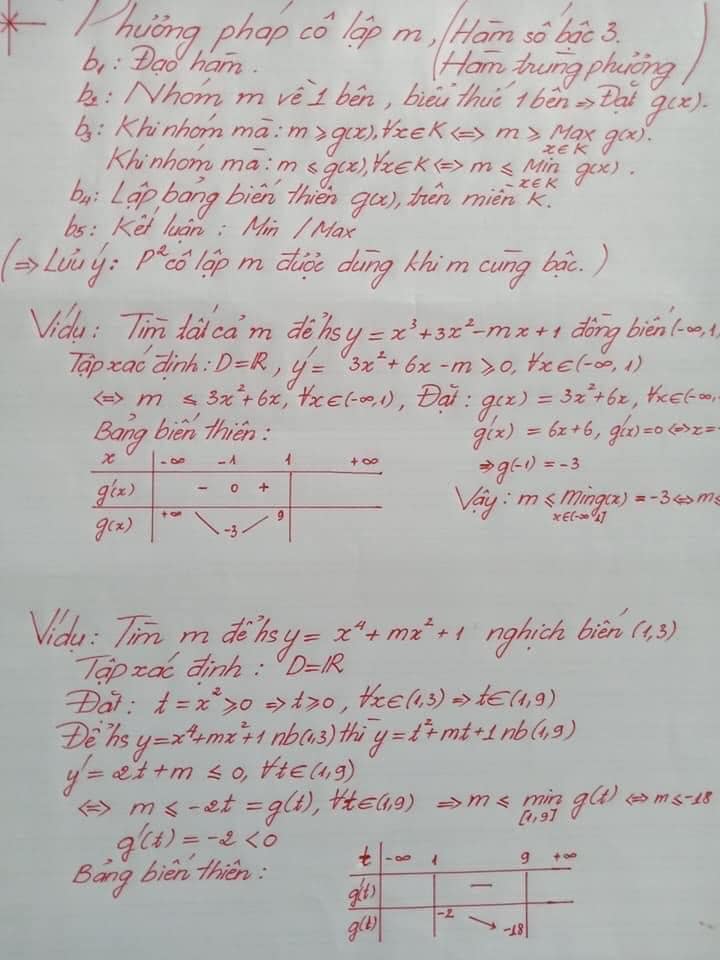 Phương pháp cô lập m, (Hàm số bậc 3.
b₁: Đạo hàm. (Hàm trùng phương)
b₂: Nhóm m về 1 bên, biểu thức 1 bên ⇒ Đặt g(x).
b₃: Khi nhóm mà: m ≥ g(x), ∀x∈K ⇔ m ≥ Max g(x).
x∈K
Khi nhóm mà: m ≤ g(x), ∀x∈K ⇔ m ≤ Min g(x).
x∈K
b₄: Lập bảng biến thiên g(x), trên miền K.
b₅: Kết luận: Min / Max
(⇒ Lưu ý: P² cô lập m được dùng khi m cùng bậc.)
Ví dụ: Tìm tất cả m để hs y = x³+3x²-mx+1 đồng biến (-∞, 1
Tập xác định: D=ℝ, y' = 3x²+6x-m ≥ 0, ∀x∈(-∞, 1)
⇔ m ≤ 3x²+6x, ∀x∈(-∞,1), Đặt: g(x) = 3x²+6x, ∀x∈(-∞,
Bảng biến thiên: g'(x) = 6x+6, g'(x)=0 ⇔ x=-
x -∞ -1 1 +∞ ⇒ g(-1) = -3
g'(x) - 0 + Vậy: m ≤ Min g(x) = -3 ⇔ m ≤
x∈(-∞ 1]
g(x) +∞ -3 9
Ví dụ: Tìm m để hs y = x⁴+mx²+1 nghịch biến (1,3)
Tập xác định: D=ℝ
Đặt: t = x² ≥ 0 ⇒ t ≥ 0, ∀x∈(1,3) ⇒ t∈(1,9)
Để hs y=x⁴+mx²+1 nb(1,3) thì y=t²+mt+1 nb(1,9)
y' = 2t+m ≤ 0, ∀t∈(1,9)
⇔ m ≤ -2t = g(t), ∀t∈(1,9) ⇒ m ≤ min g(t) ⇔ m ≤ -18
[1,9]
g'(t) = -2 < 0
Bảng biến thiên:
t -∞ 1 9 +∞
g'(t) -
g(t) -2 -18